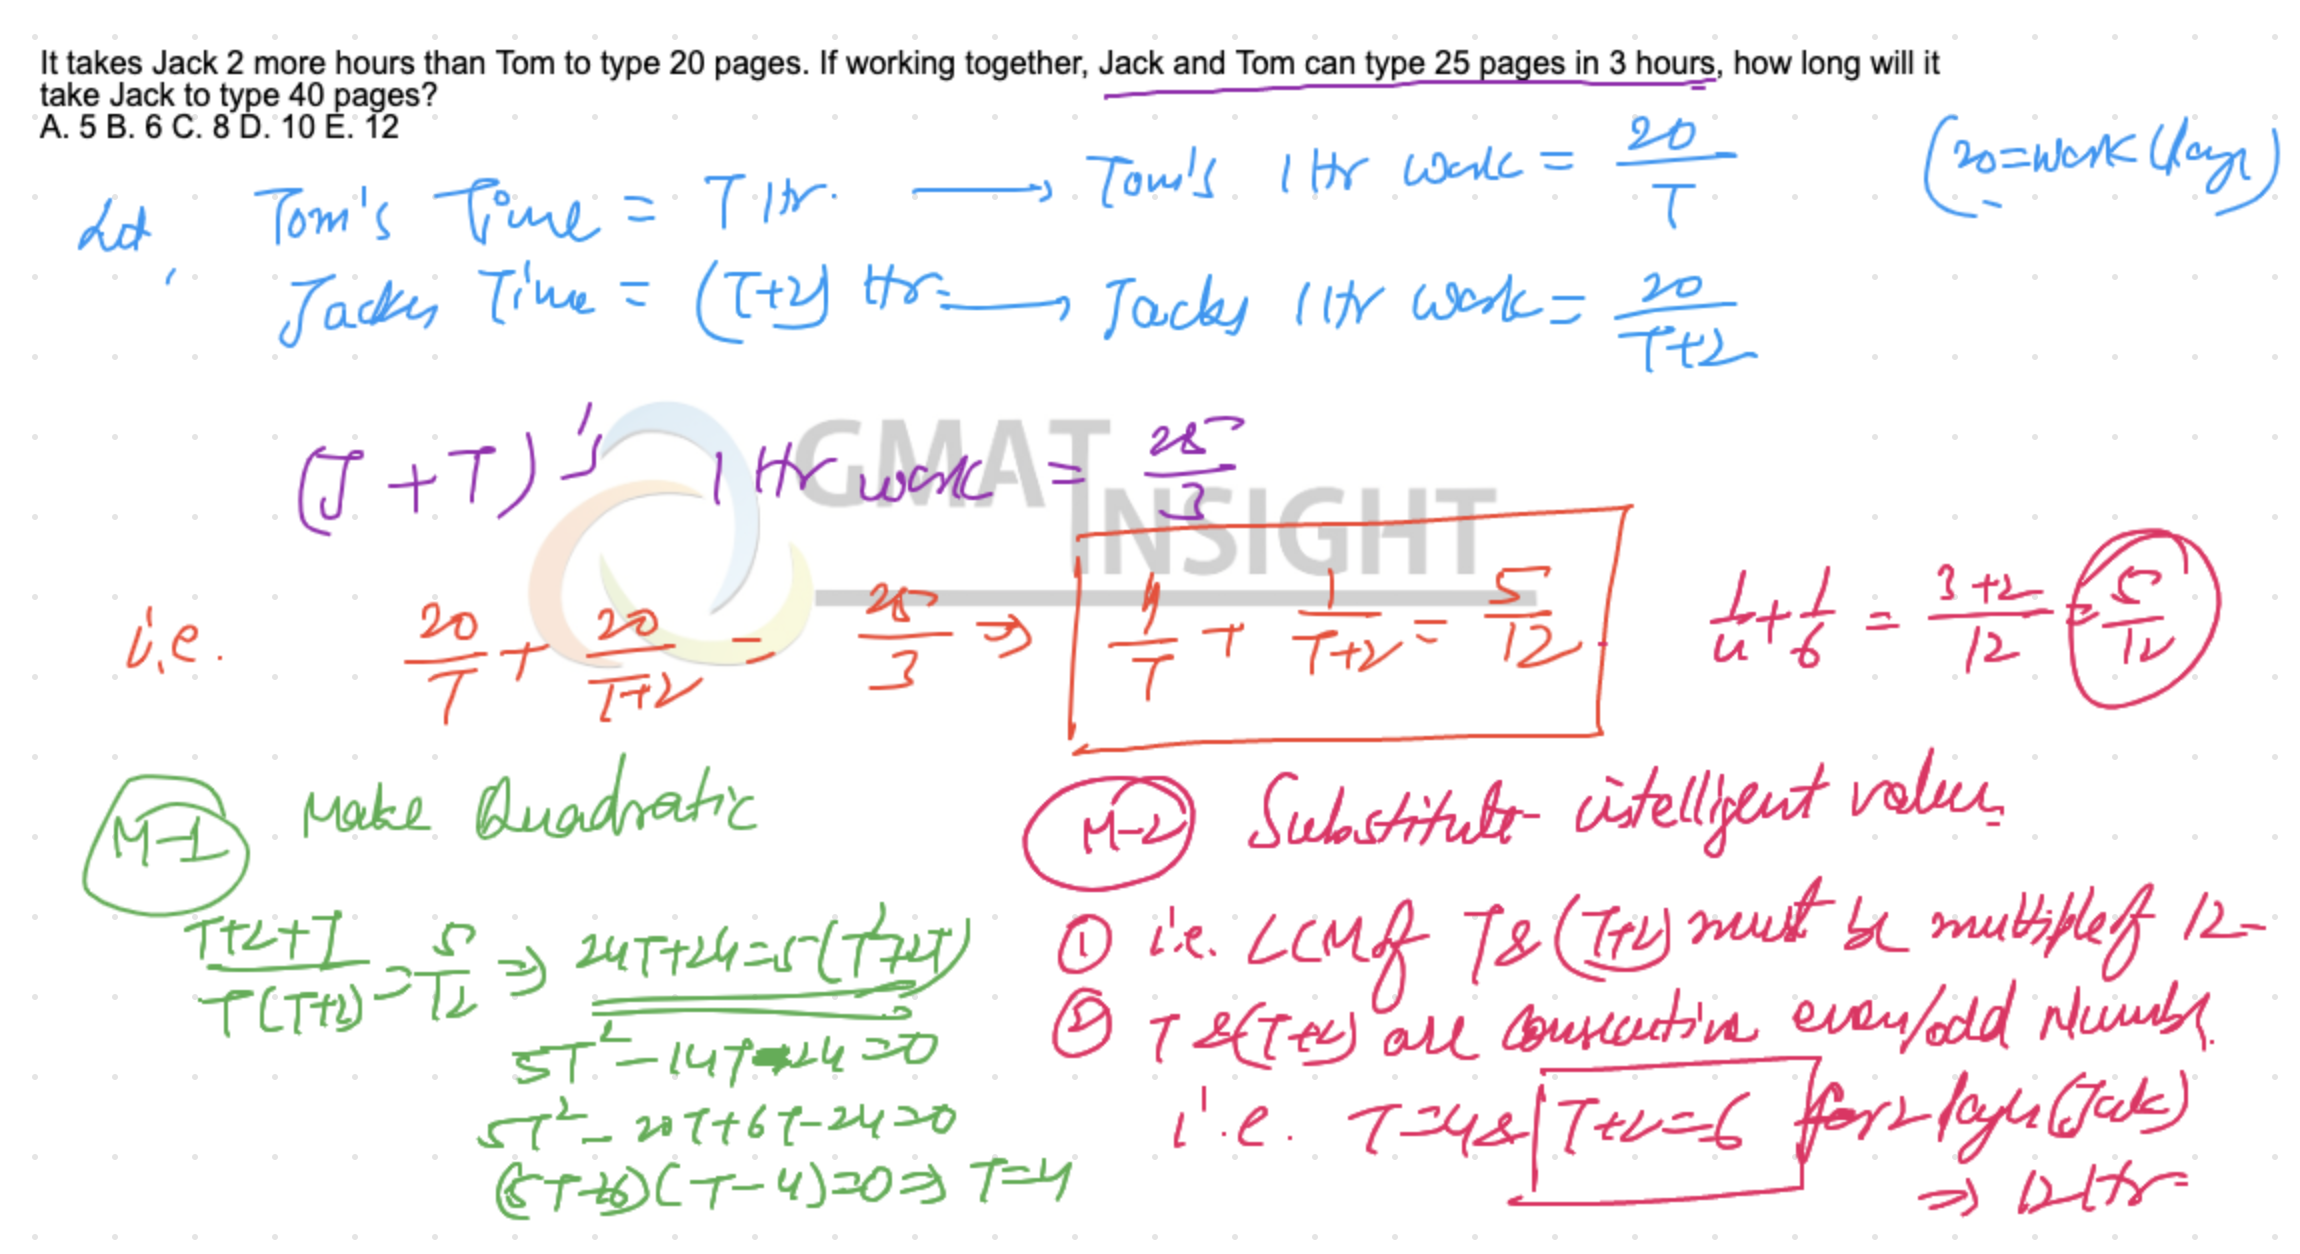 It takes Jack 2 more hours than Tom to type 20 pages. If working together, Jack and Tom can type 25 pages in 3 hours, how long will it
take Jack to type 40 pages?
A. 5 B. 6 C. 8 D. 10 E. 12
Let, Tom's Time = T Hr. → Tom's 1 Hr work = 20/T (20=work
Jacks Time = (T+2) Hr. → Jacks 1 Hr work = 20/T+2
(J+T)'s 1 Hr work = 25/3
GMAT INSIGHT
i.e. 20/T + 20/T+2 = 25/3 ⇒ 1/T + 1/T+2 = 5/12
1/4 + 1/6 = 3+2/12 = 5/12
M-1 Make Quadratic
T+2+T/T(T+2) = 5/12 ⇒ 24T+24=5(T²+2T)
5T²-14T-24=0
5T²-20T+6T-24=0
(5T+6)(T-4)=0 ⇒ T=4
M-2 Substitute intelligent values
① i.e. LCM of T & (T+2) must be multiple of 12
② T & (T+2) are consecutive even/odd Number.
i.e. T=4 & T+2=6 for (Jack)
⇒ 12 Hr